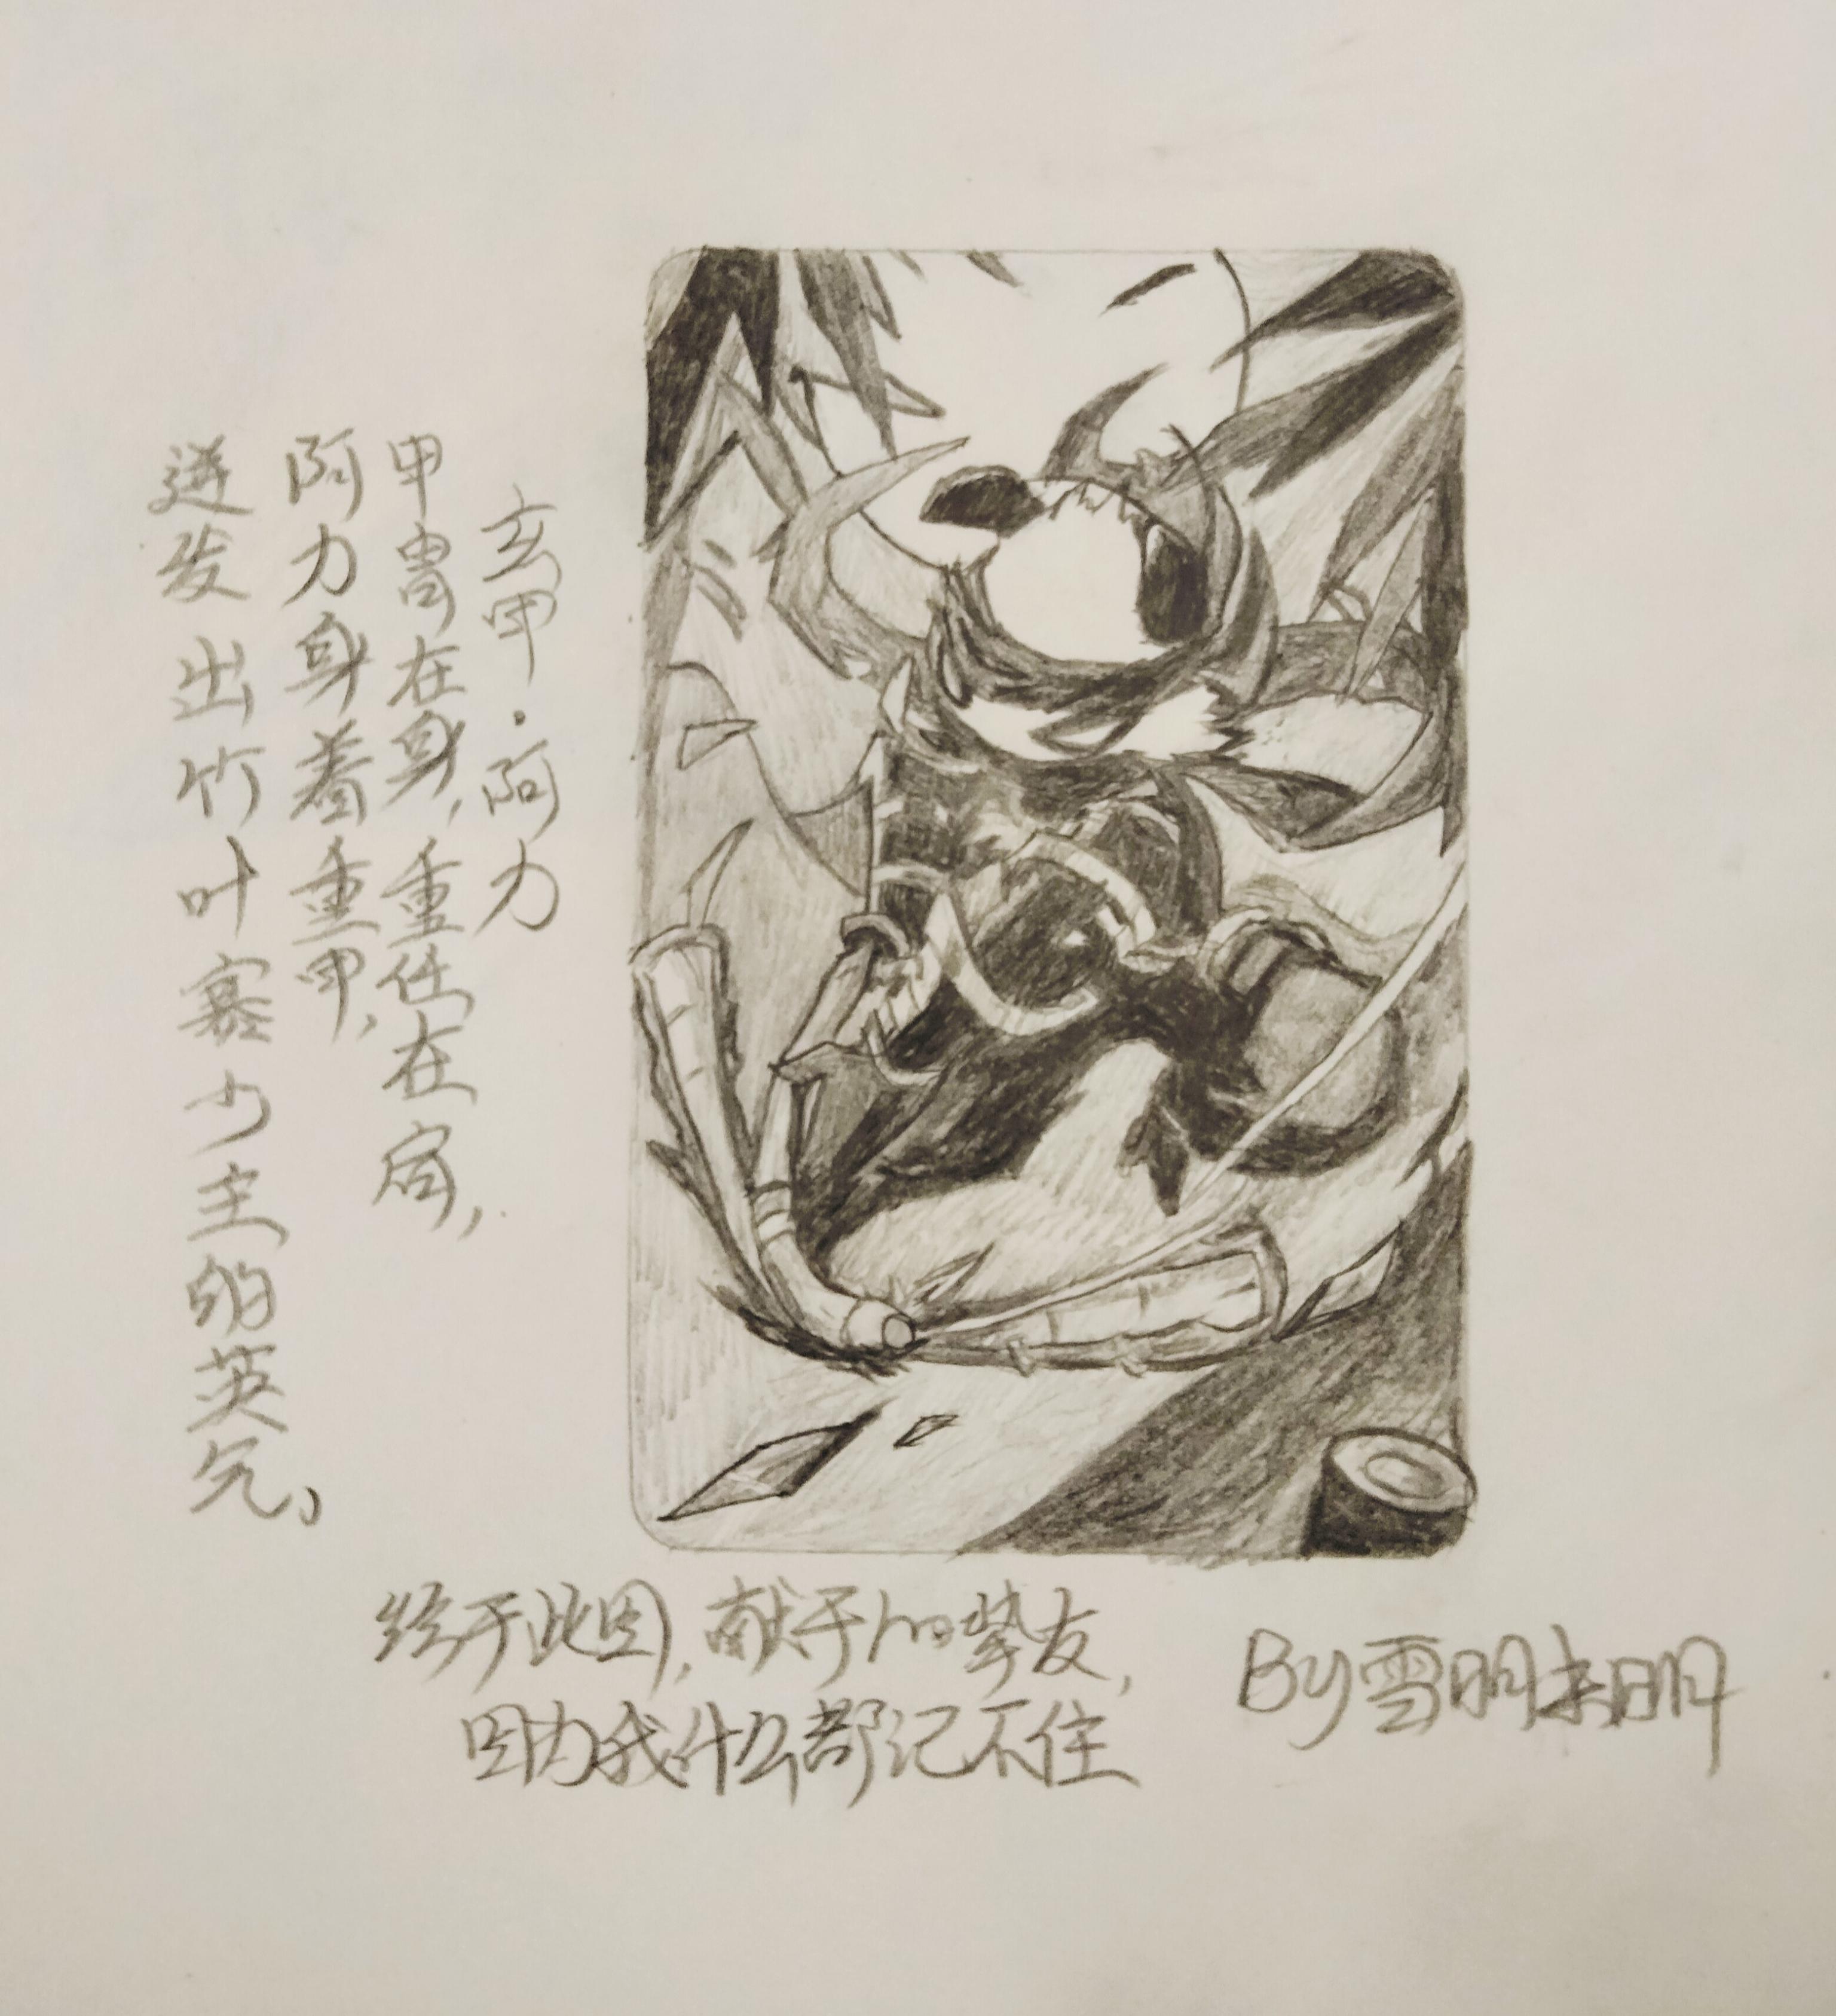 玄甲·阿力
甲胄在身，重任在肩，
阿力身着重甲，
迸发出竹叶寨少主的英气。
终于此图，献于hoo挚友，
因为我什么都记不住
By雪明未明